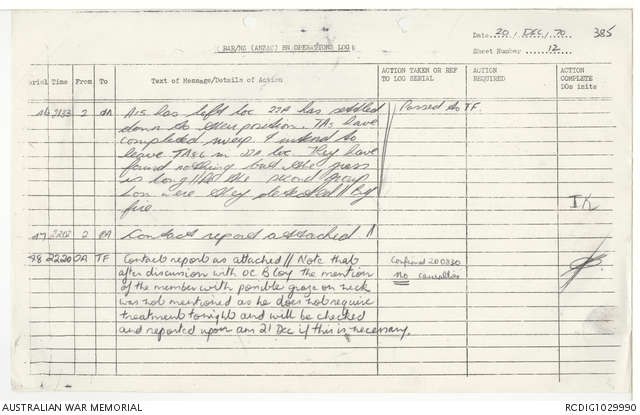 Date 20 / DEC / 70 385
2RAR/NZ (ANZAC) BN OPERATIONS LOG
Sheet Number 12
Serial Time From To Text of Message/Details of Action ACTION TAKEN OR REF TO LOG SERIAL ACTION REQUIRED ACTION COMPLETE DOs inits
46 2133 2 0A A15 has left loc 22A has settled Passed to TF.
down to position. TAs have
completed sweep & intend to
leave in loc They have
found nothing but the grass
is long // the second group
were they detected // By
fire JK
47 2202 2 0A Contact report attached //
48 2220 0A TF Contact report as attached // Note that Confirmed 200330
after discussion with OC B Coy the mention No casualties
of the member with possible graze on neck
was not mentioned as he does not require
treatment tonight and will be checked
and reported upon am 21 Dec if this is necessary.
AUSTRALIAN WAR MEMORIAL RCDIG1029990